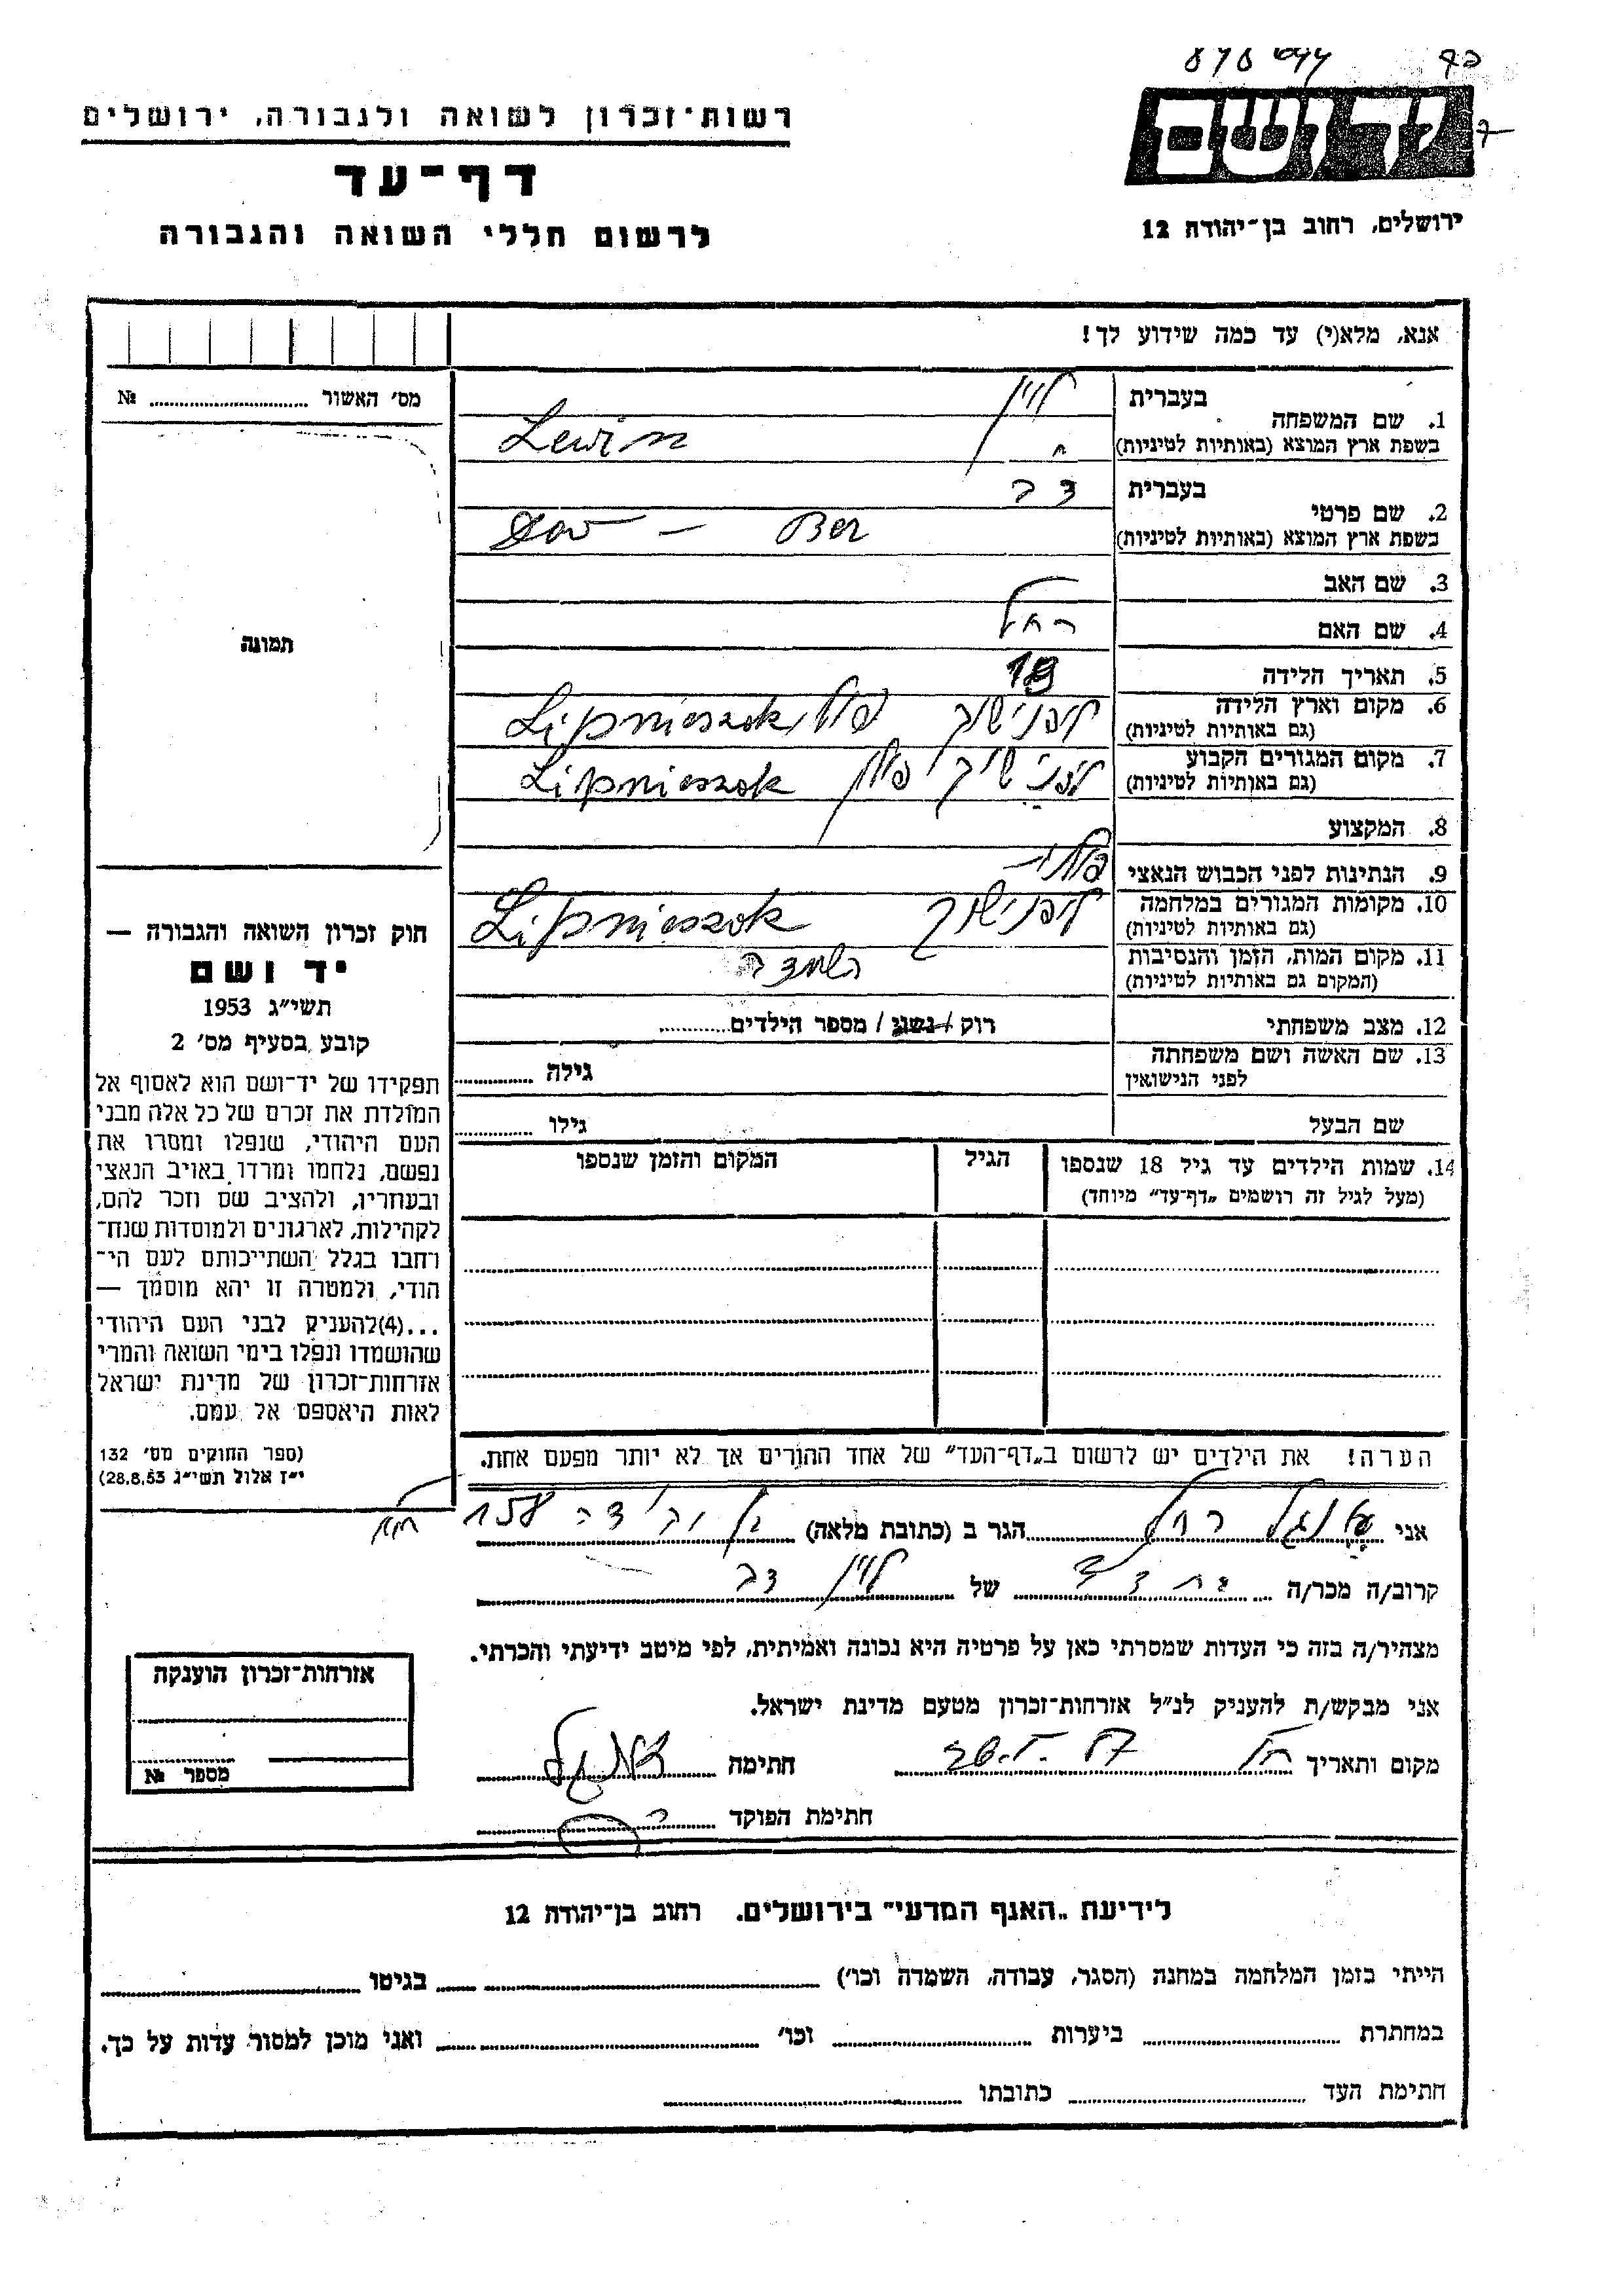 רשות־זכרון לשואה ולגבורה, ירושלים
דף־עד
לרשום חללי השואה והגבורה
ירושלים, רחוב בן־יהודה 12
אנא, מלא(י) עד כמה שידוע לך!
מס' האשור № 
תמונה
1. שם המשפחה
בעברית לוין
בשפת ארץ המוצא (באותיות לטיניות) Lewin
2. שם פרטי
בעברית דב
בשפת ארץ המוצא (באותיות לטיניות) Dov – Ber
3. שם האב
4. שם האם רחל
5. תאריך הלידה
6. מקום וארץ הלידה ליפנישוק פולין Lipnieszok
(גם באותיות לטיניות)
7. מקום המגורים הקבוע ליפנישוק פולין Lipnieszok
(גם באותיות לטיניות)
8. המקצוע
9. הנתינות לפני הכבוש הנאצי פולנית
10. מקומות המגורים במלחמה ליפנישוק Lipnieszok
(גם באותיות לטיניות)
11. מקום המות, הזמן והנסיבות השמדה
(המקום גם באותיות לטיניות)
12. מצב משפחתי רוק / נשוי / מספר הילדים
13. שם האשה ושם משפחתה גילה
לפני הנישואין
שם הבעל גילו
14. שמות הילדים עד גיל 18 שנספו הגיל המקום והזמן שנספו
(מעל לגיל זה רושמים "דף־עד" מיוחד)
הערה! את הילדים יש לרשום ב"דף־העד" של אחד ההורים אך לא יותר מפעם אחת.
חוק זכרון השואה והגבורה —
יד ושם
תשי"ג 1953
קובע בסעיף מס' 2
תפקידו של יד־ושם הוא לאסוף אל
המולדת את זכרם של כל אלה מבני
העם היהודי, שנפלו ומסרו את
נפשם, נלחמו ומרדו באויב הנאצי
ובעוזריו, ולהציב שם וזכר להם,
לקהילות, לארגונים ולמוסדות שנח־
רבו בגלל השתייכותם לעם הי־
הודי, ולמטרה זו יהא מוסמך —
...(4)להעניק לבני העם היהודי
שהושמדו ונפלו בימי השואה והמרי
אזרחות־זכרון של מדינת ישראל
לאות היאספם אל עמם.
(ספר החוקים מס' 132
י"ז אלול תשי"ג 28.8.53)
אני רחל הגר ב (כתובת מלאה) בן יהודה 158
קרוב/ה מכר/ה של לוין דב
מצהיר/ה בזה כי העדות שמסרתי כאן על פרטיה היא נכונה ואמיתית, לפי מיטב ידיעתי והכרתי.
אני מבקש/ת להעניק לנ"ל אזרחות־זכרון מטעם מדינת ישראל.
מקום ותאריך חתימה
חתימת הפוקד
אזרחות־זכרון הוענקה
מספר №
לידיעת "האגף המדעי" בירושלים. רחוב בן־יהודה 12
הייתי בזמן המלחמה במחנה (הסגר, עבודה, השמדה וכו') בגיטו
במחתרת ביערות וכו' ואני מוכן למסור עדות על כך.
חתימת העד כתובתו